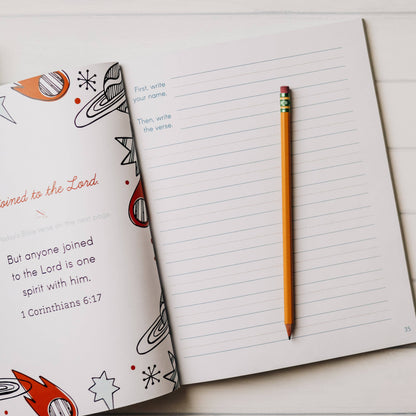 joined to the Lord.
Today's Bible verse on the next page
But anyone joined
to the Lord is one
spirit with him.
1 Corinthians 6:17
First, write
your name.
Then, write
the verse.
35